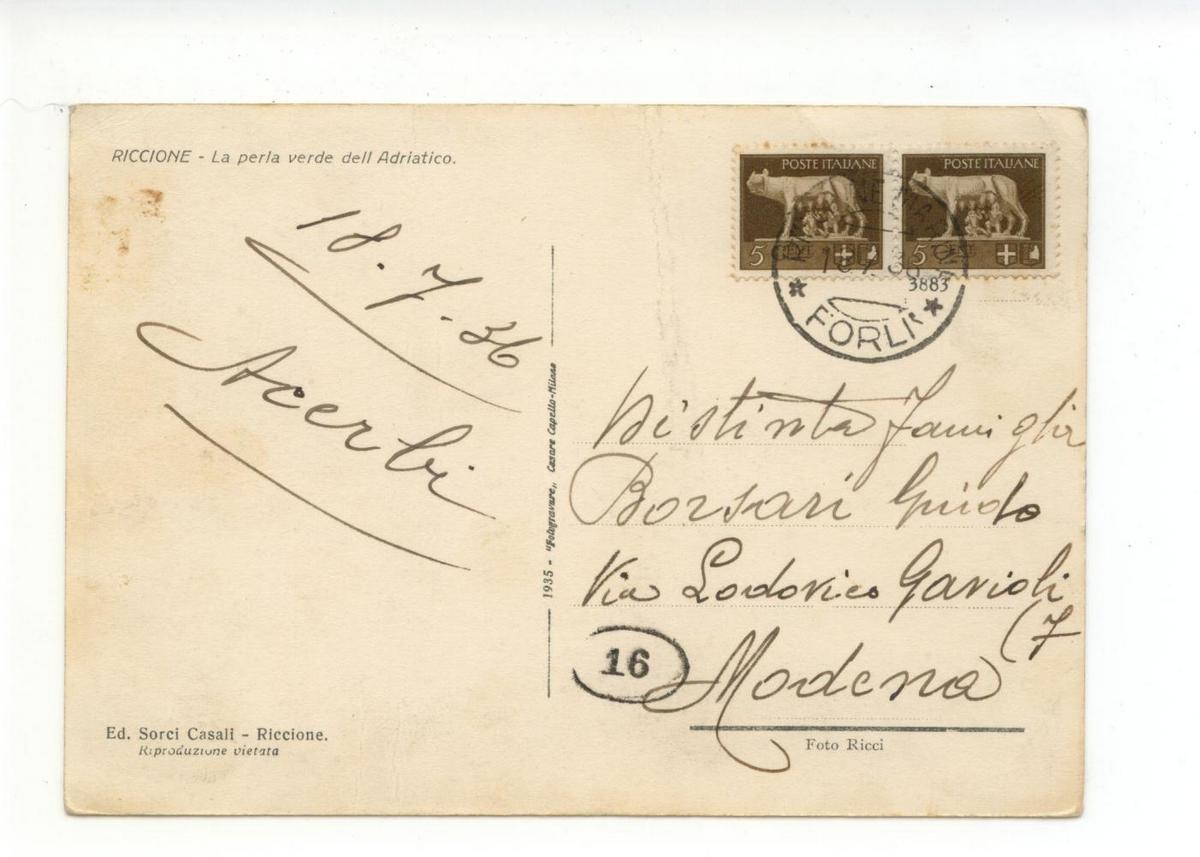 RICCIONE - La perla verde dell Adriatico.
18.7.36
Acerbi
Ed. Sorci Casali - Riccione.
Riproduzione vietata
1935 - "Fotogravure„ Cesare Capello-Milano
POSTE ITALIANE
5 CENT
POSTE ITALIANE
5 CENT
3883
* FORLI' *
Distinta Famiglia
Borsari Guido
Via Lodovico Gavioli
(7
Modena
16
Foto Ricci